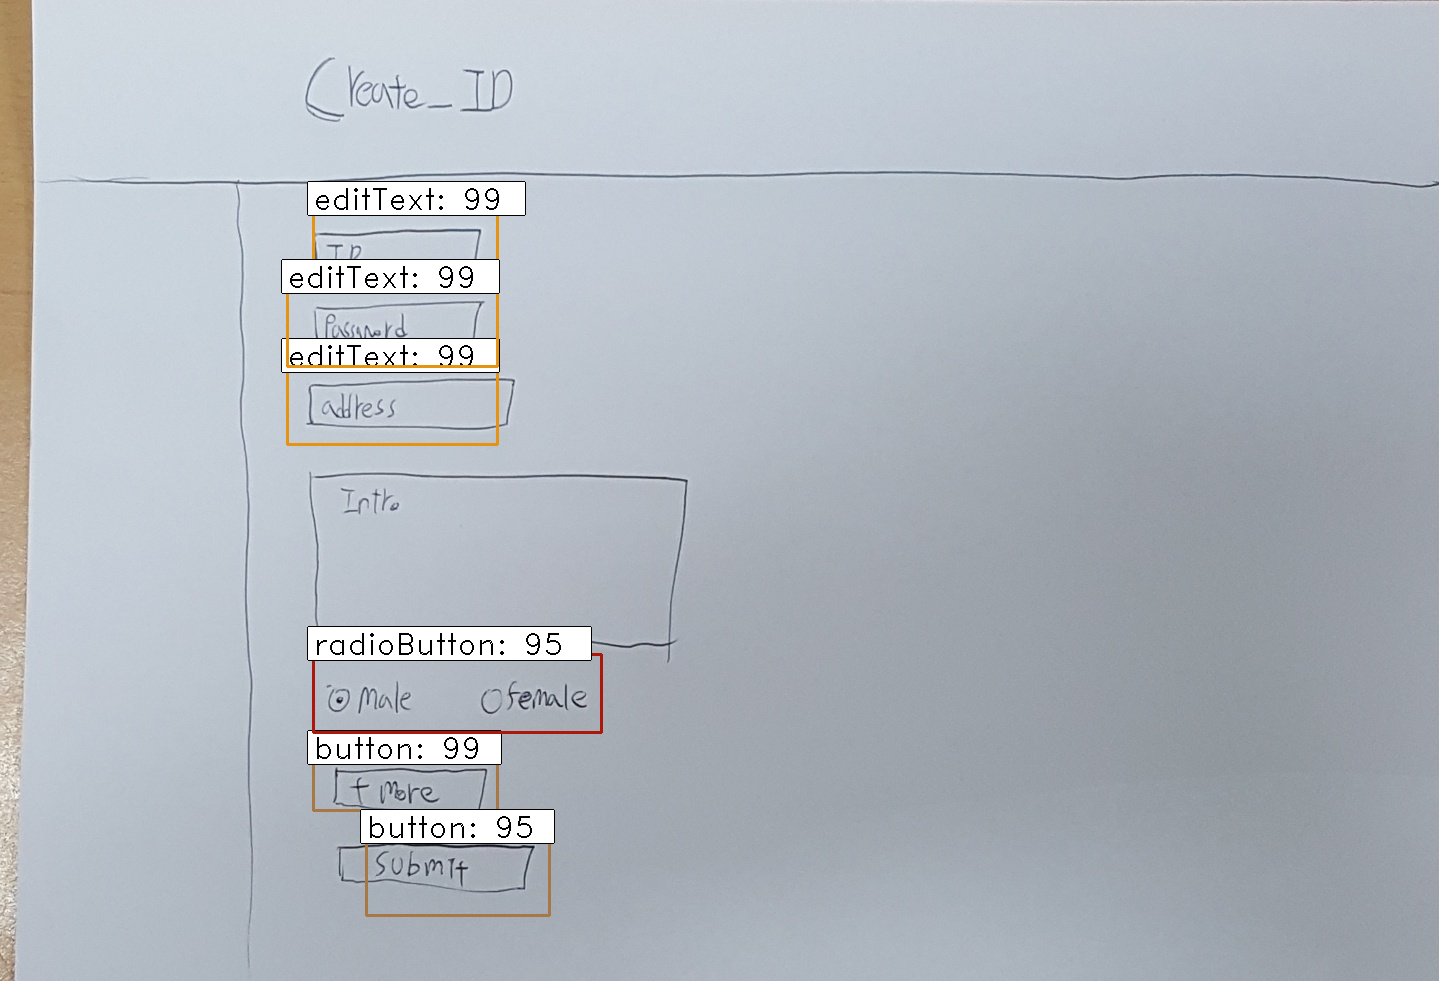 Create_ID
editText: 99
ID
editText: 99
Password
editText: 99
address
Intro
radioButton: 95
Male female
button: 99
+ More
button: 95
Submit